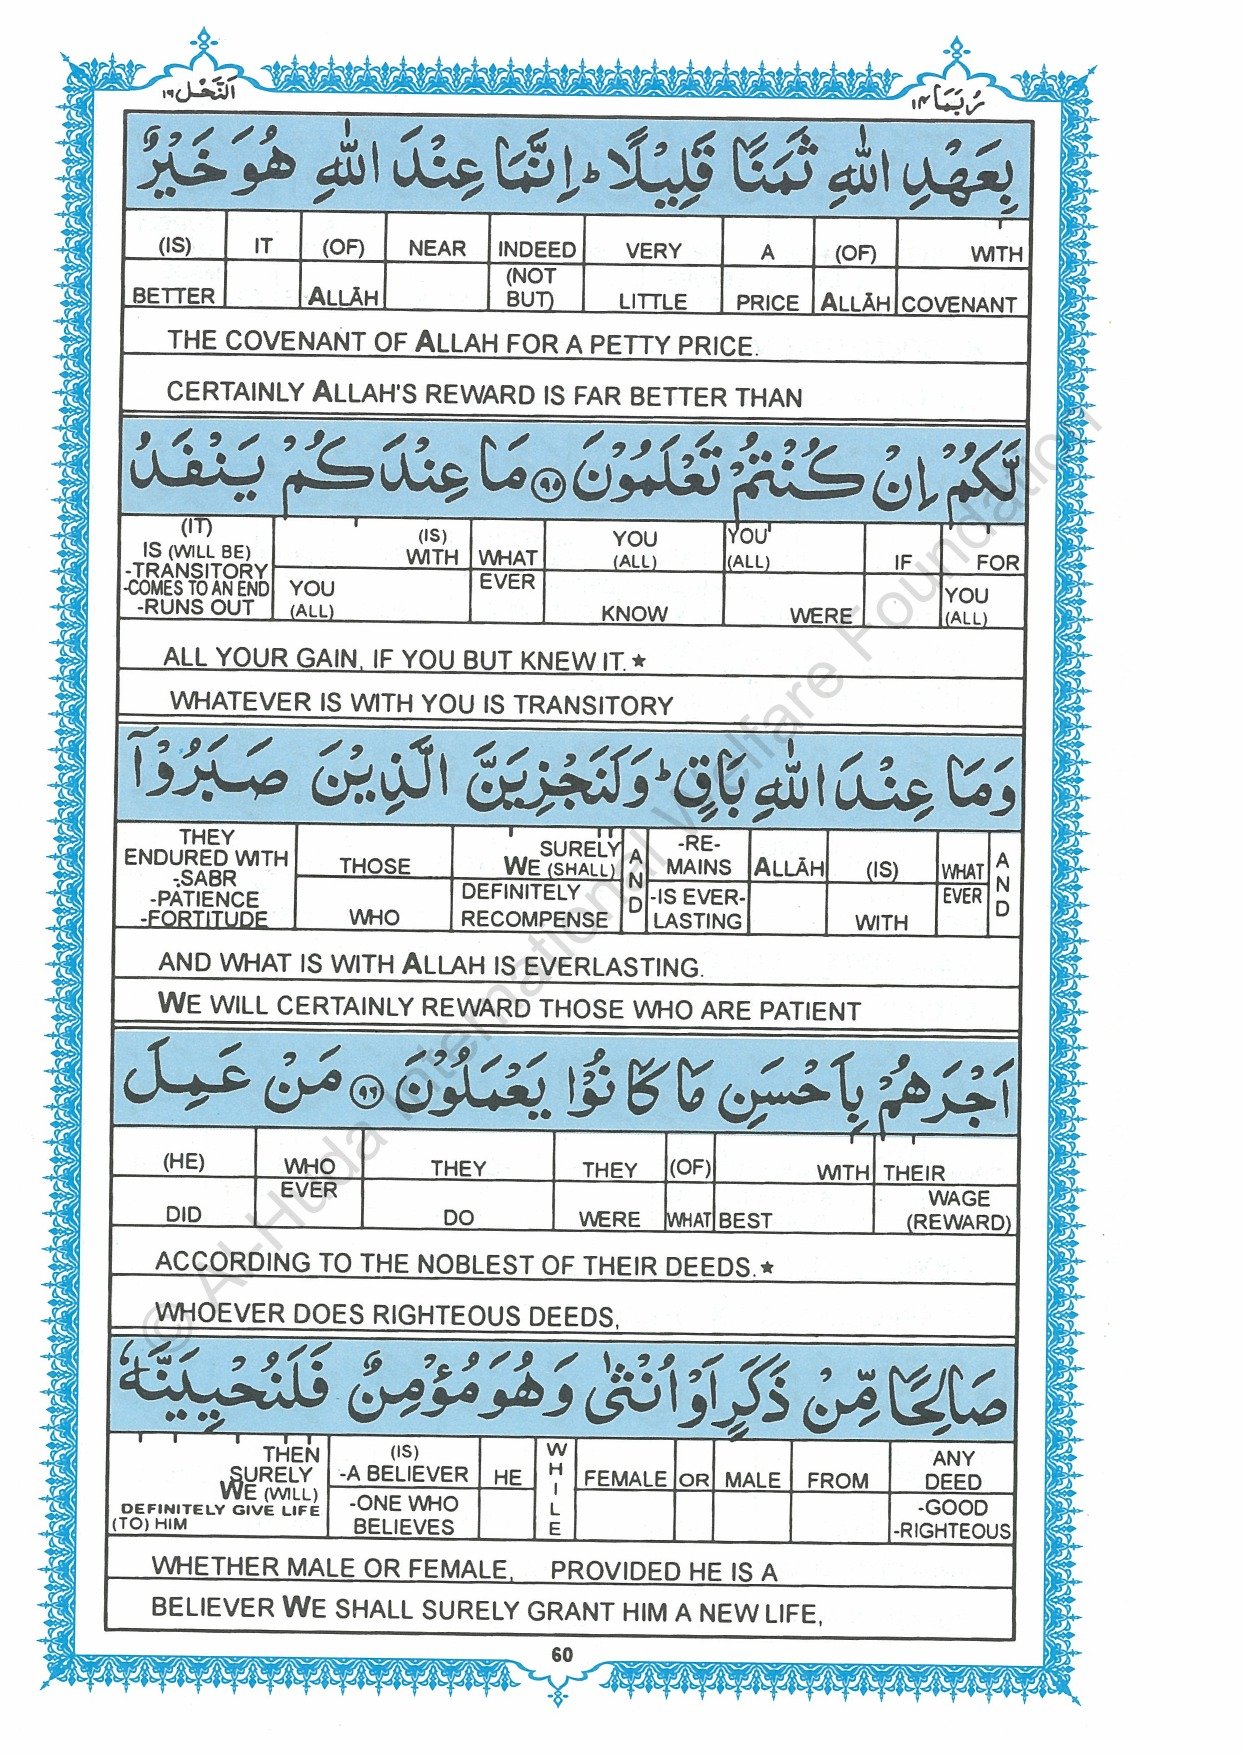 اَلنَّحْل ١٦
رُبَمَا ١٤
بِعَهْدِ اللّٰهِ ثَمَنًا قَلِيْلًا ؕ اِنَّمَا عِنْدَ اللّٰهِ هُوَ خَيْرٌ
(IS) IT (OF) NEAR INDEED VERY A (OF) WITH
BETTER ALLĀH (NOT BUT) LITTLE PRICE ALLĀH COVENANT
THE COVENANT OF ALLAH FOR A PETTY PRICE.
CERTAINLY ALLAH'S REWARD IS FAR BETTER THAN
لَّكُمْ اِنْ كُنْتُمْ تَعْلَمُوْنَ ﴿٩٥﴾ مَا عِنْدَكُمْ يَنْفَدُ
(IT) IS (WILL BE) -TRANSITORY -COMES TO AN END -RUNS OUT
(IS) WITH WHAT YOU (ALL) YOU (ALL) IF FOR
YOU (ALL) EVER KNOW WERE YOU (ALL)
ALL YOUR GAIN, IF YOU BUT KNEW IT.★
WHATEVER IS WITH YOU IS TRANSITORY
وَمَا عِنْدَ اللّٰهِ بَاقٍ ؕ وَلَنَجْزِيَنَّ الَّذِيْنَ صَبَرُوْۤا
THEY ENDURED WITH -SABR -PATIENCE -FORTITUDE
THOSE SURELY WE (SHALL) AND -RE- MAINS ALLĀH (IS) WHAT AND
WHO DEFINITELY RECOMPENSE -IS EVER- LASTING WITH EVER
AND WHAT IS WITH ALLAH IS EVERLASTING.
WE WILL CERTAINLY REWARD THOSE WHO ARE PATIENT
اَجْرَهُمْ بِاَحْسَنِ مَا كَانُوْا يَعْمَلُوْنَ ﴿٩٦﴾ مَنْ عَمِلَ
(HE) WHO THEY THEY (OF) WITH THEIR
DID EVER DO WERE WHAT BEST WAGE (REWARD)
ACCORDING TO THE NOBLEST OF THEIR DEEDS.★
WHOEVER DOES RIGHTEOUS DEEDS,
صَالِحًا مِّنْ ذَكَرٍ اَوْ اُنْثٰى وَهُوَ مُؤْمِنٌ فَلَنُحْيِيَنَّهٗ
THEN SURELY WE (WILL) DEFINITELY GIVE LIFE (TO) HIM
(IS) -A BELIEVER HE WHILE FEMALE OR MALE FROM ANY DEED
-ONE WHO BELIEVES -GOOD -RIGHTEOUS
WHETHER MALE OR FEMALE, PROVIDED HE IS A
BELIEVER WE SHALL SURELY GRANT HIM A NEW LIFE,
60
© Al-Huda International Welfare Foundation